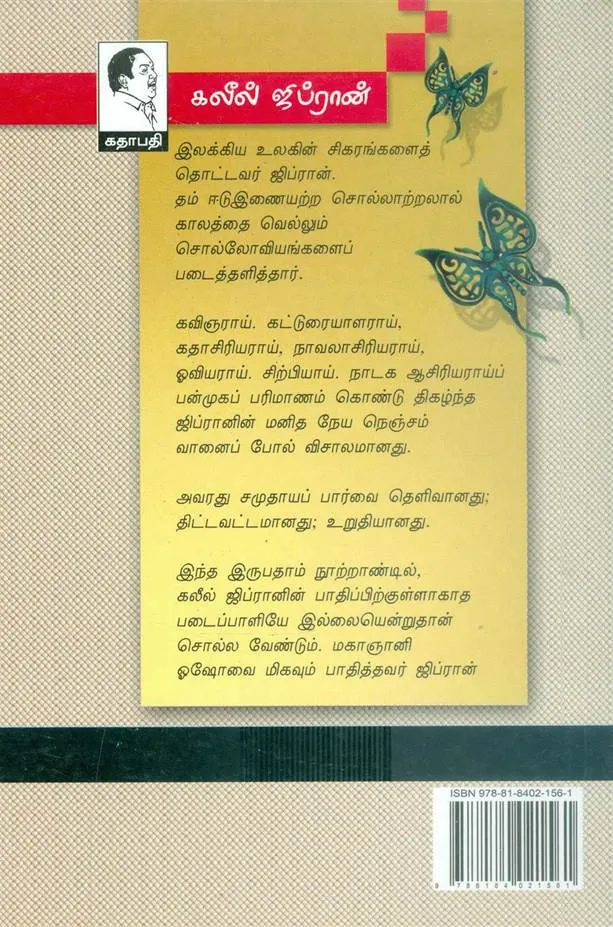 கலீல் ஜிப்ரான்
கதாபதி
இலக்கிய உலகின் சிகரங்களைத்
தொட்டவர் ஜிப்ரான்.
தம் ஈடுஇணையற்ற சொல்லாற்றலால்
காலத்தை வெல்லும்
சொல்லோவியங்களைப்
படைத்தளித்தார்.
கவிஞராய். கட்டுரையாளராய்,
கதாசிரியராய், நாவலாசிரியராய்,
ஓவியராய். சிற்பியாய். நாடக ஆசிரியராய்ப்
பன்முகப் பரிமாணம் கொண்டு திகழ்ந்த
ஜிப்ரானின் மனித நேய நெஞ்சம்
வானைப் போல் விசாலமானது.
அவரது சமுதாயப் பார்வை தெளிவானது;
திட்டவட்டமானது; உறுதியானது.
இந்த இருபதாம் நூற்றாண்டில்,
கலீல் ஜிப்ரானின் பாதிப்பிற்குள்ளாகாத
படைப்பாளியே இல்லையென்றுதான்
சொல்ல வேண்டும். மகாஞானி
ஓஷோவை மிகவும் பாதித்தவர் ஜிப்ரான்
ISBN 978-81-8402-156-1
9 788184 021561